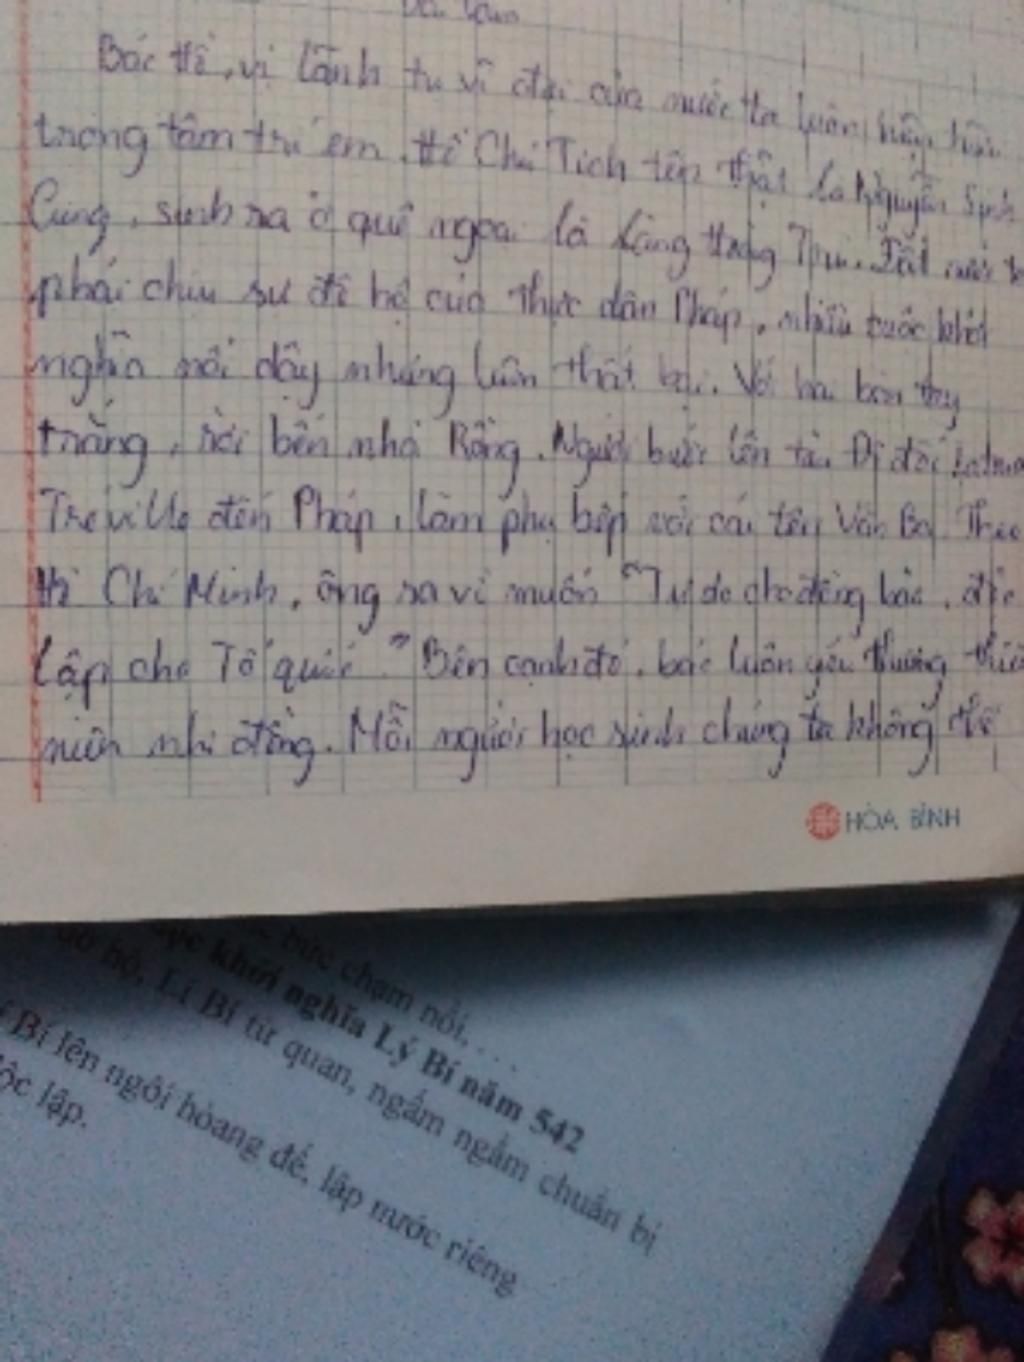 Bài làm
Bác Hồ, vị lãnh tụ vĩ đại của nước ta luôn hiện hữu
trong tâm trí em. Hồ Chí Tịch tên thật là Nguyễn Sinh
Cung, sinh ra ở quê ngoại là làng Hoàng Trù. Đất nước
phải chịu sự đô hộ của thực dân Pháp, nhiều cuộc khởi
nghĩa nổi dậy nhưng luôn thất bại. Với hai bàn tay
trắng, rời bến nhà Rồng. Người bước lên tàu Đi đốc
Treville đến Pháp, làm phụ bếp với cái tên Văn Ba. Theo
Hồ Chí Minh, ông ra vì muốn "Tự do cho đồng bào, độc
lập cho Tổ quốc." Bên cạnh đó, bác luôn yêu thương thiếu
niên nhi đồng. Mỗi người học sinh chúng ta không thể
HÒA BÌNH
bức chạm nổi, ...
khởi nghĩa Lý Bí năm 542
đô hộ, Lí Bí từ quan, ngấm ngầm chuẩn bị
Bí lên ngôi hoàng đế, lập nước riêng
độc lập.